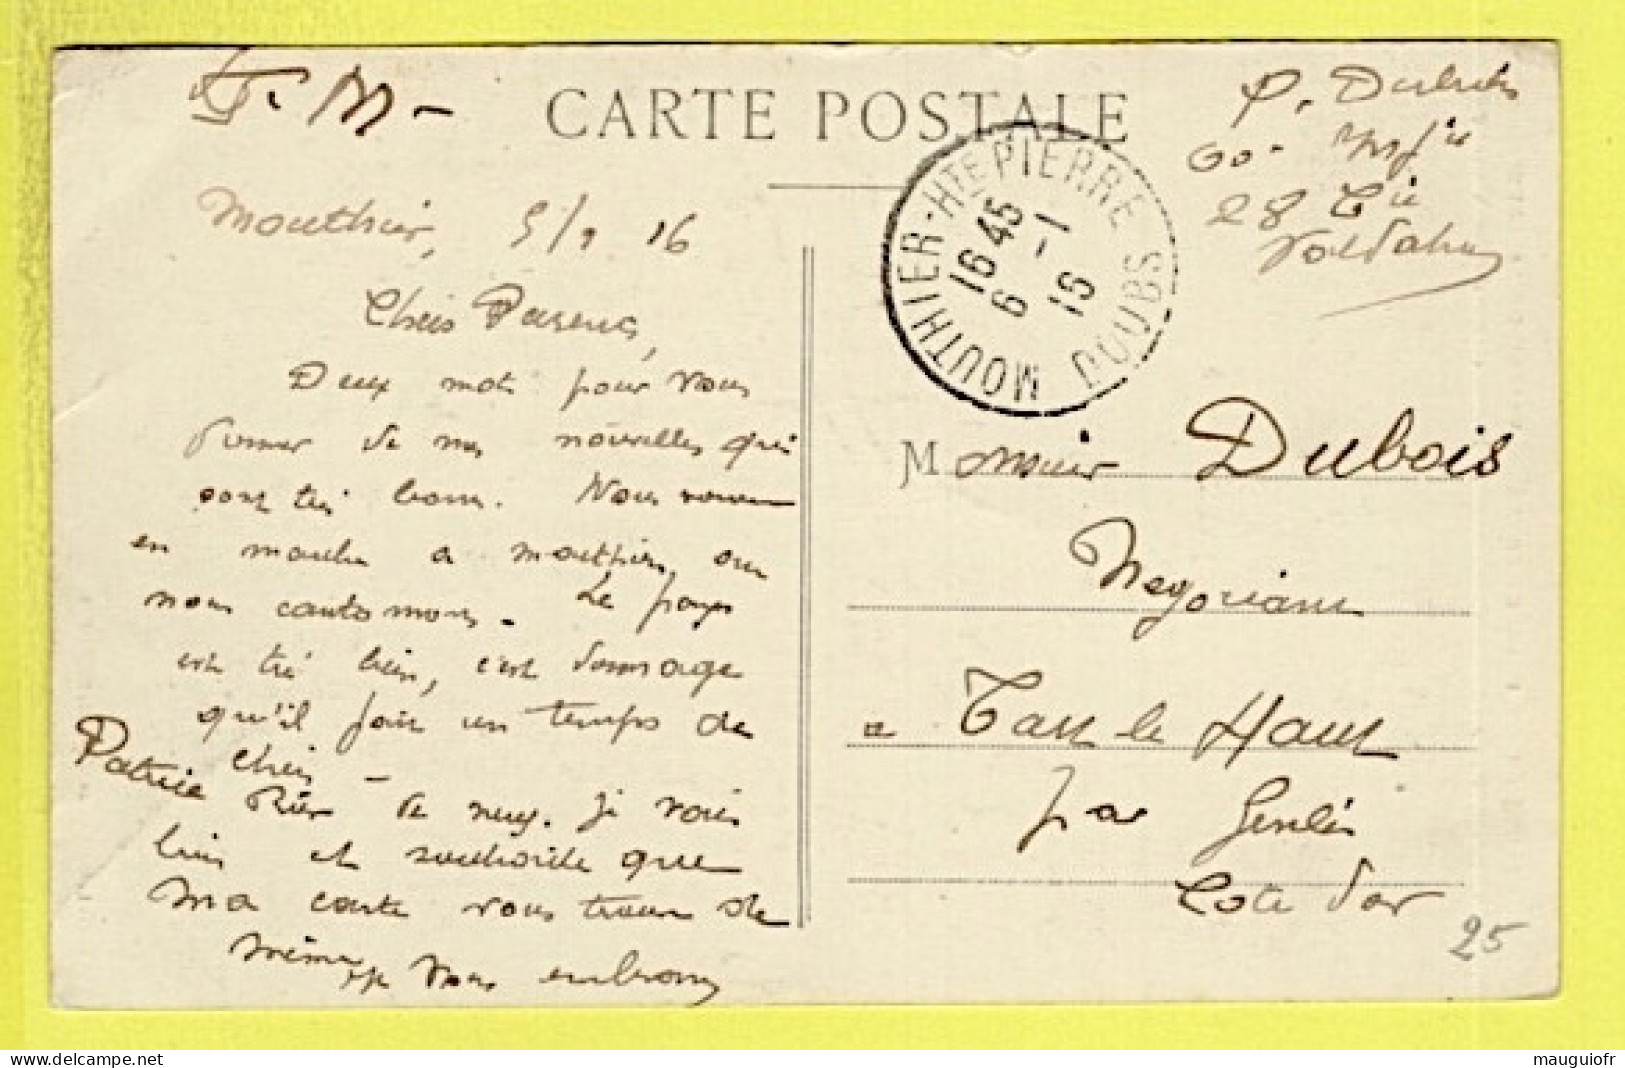 F. M.
CARTE POSTALE
P. Dubois
60e Inf ie
28 Cie
Valdahon
MOUTHIER-HTE PIERRE DOUBS
16 45
6 -1
16
Mouthier, 5/1 16
Chers Parents,
Deux mots pour vous
donner de mes nouvelles qui
sont très bonnes. Nous sommes
en manche a Mouthier, ou
nous cantonnons. Le pays
est très bien, c'est dommage
qu'il fait un temps de
chien -
Rien de neuf. Je vais
bien et souhaite que
ma carte vous trouve de
même. Je vous embrasse
Patrice
Monsieur Dubois
Negociant
a Tart le Haut
par Genlis
Cote d'or
25
mauguiofr